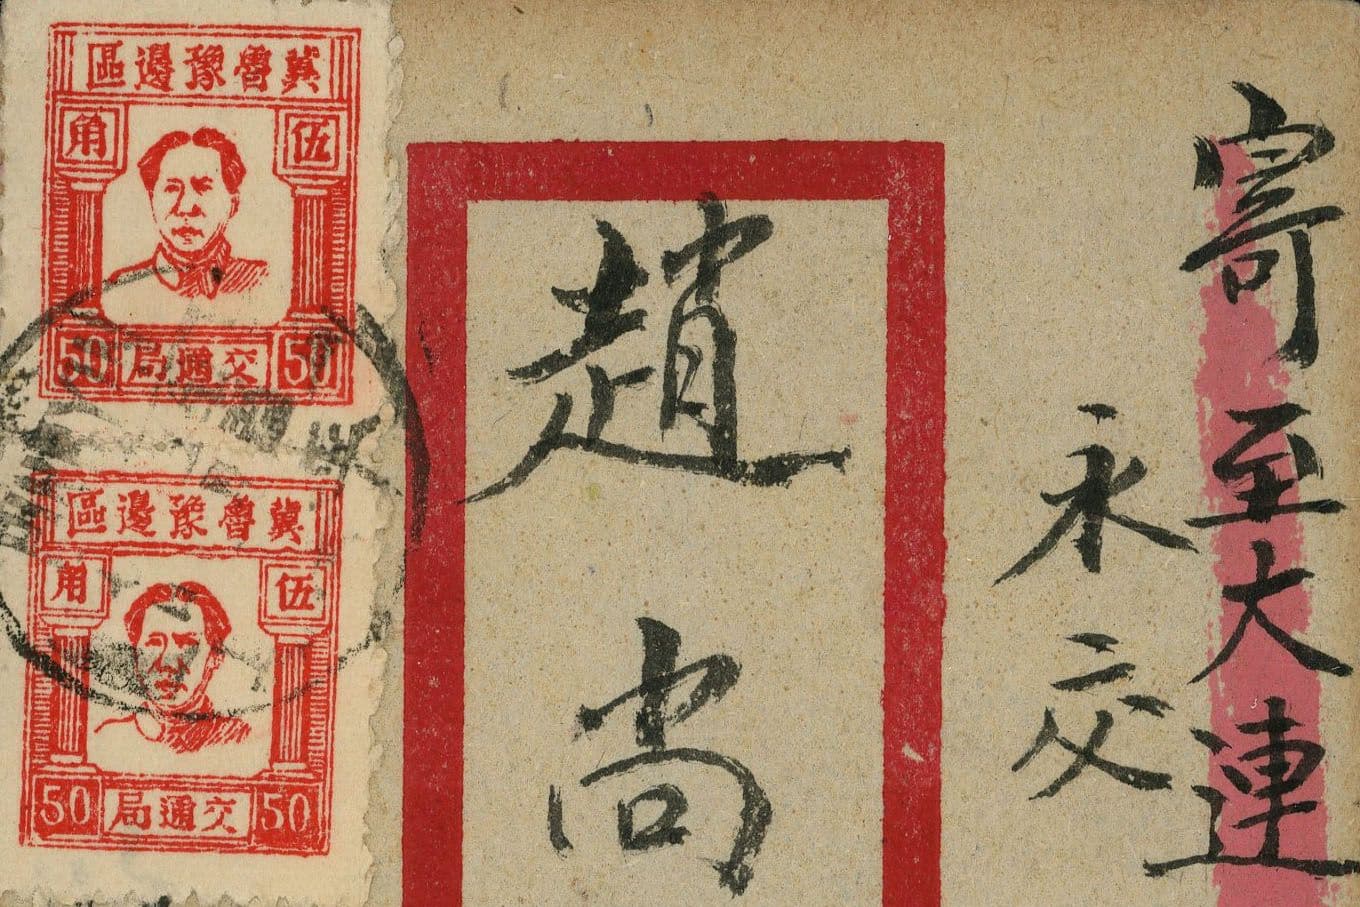 寄至大連
永交
趙尚
冀魯豫邊區
伍角
50 交通局 50
冀魯豫邊區
伍角
50 交通局 50